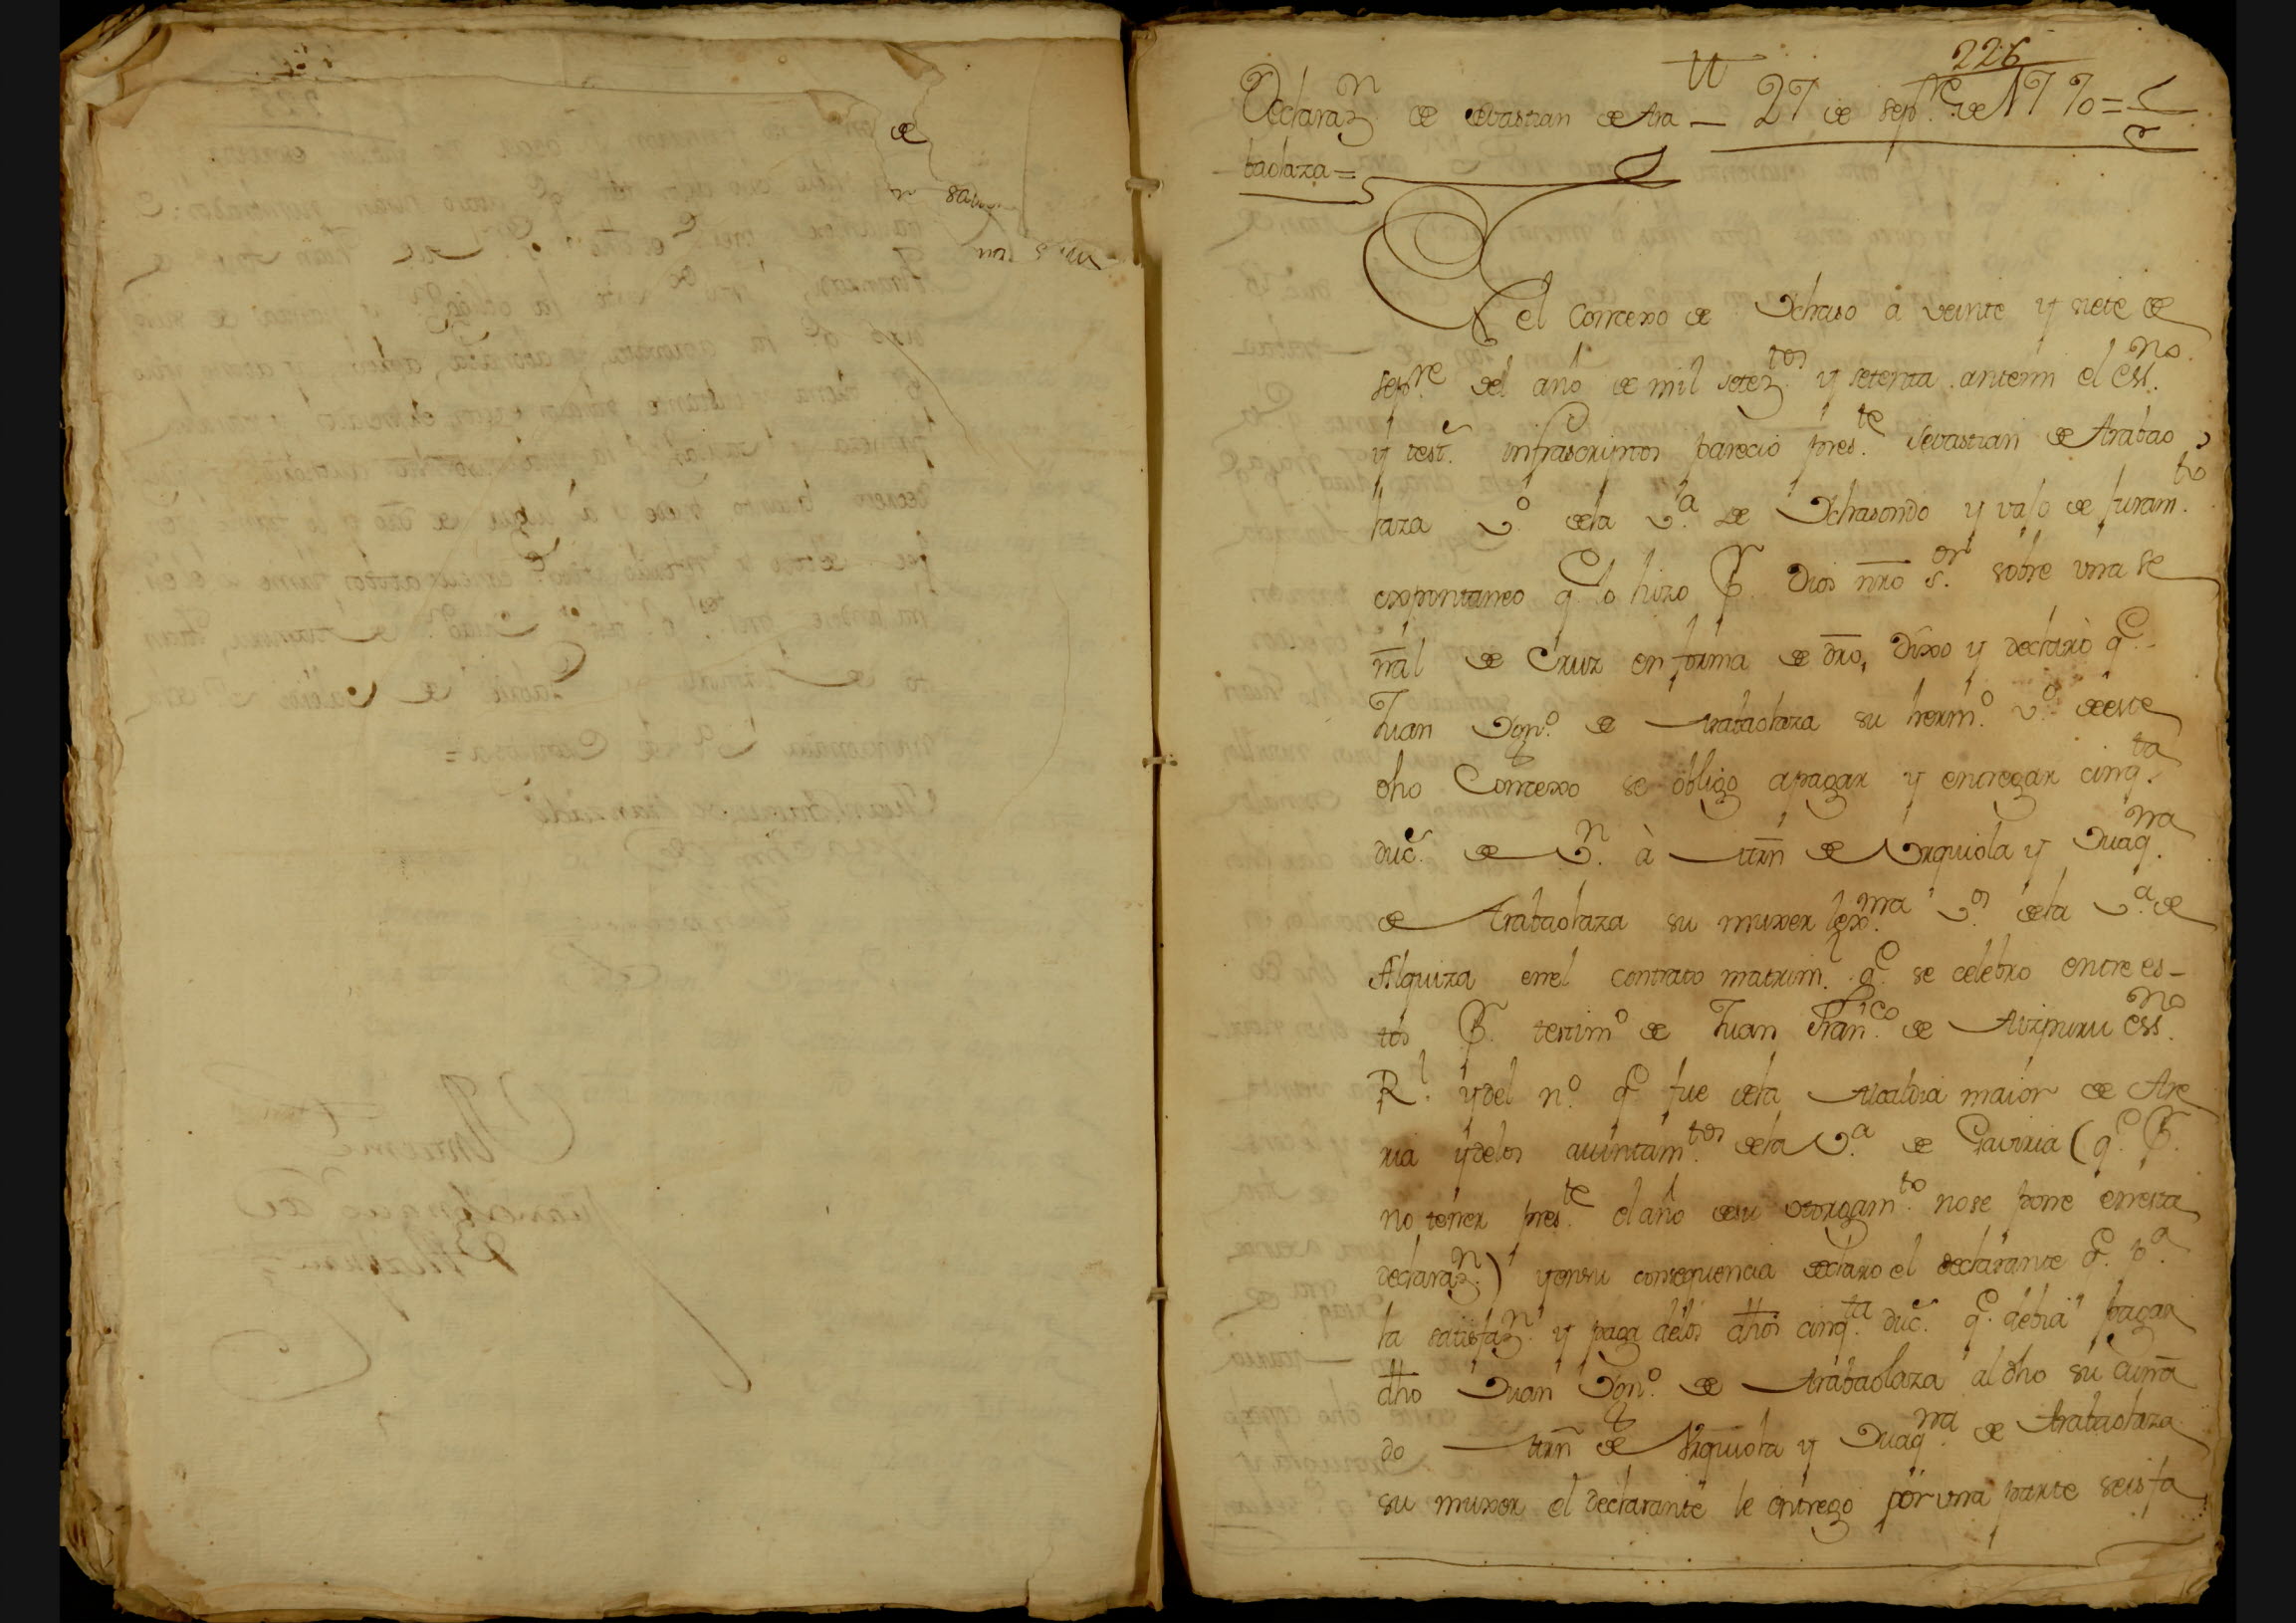 226
Declaraz.n de Sevastian de Ara — 27 de sep.re de 1770 =
baolaza =
El Concexo de Ichaso a veinte y siete de
sep.re del año de mil setez.tos y setenta antemi el ess.no
y test.s infrascriptos parecio pres.te Sevastian de Arabao
laza v.o dela v.a de Ichasondo y vajo de juram.to
expontaneo q.e lo hizo P. Dios nr̃o s.or sobre una se
ñal de Cruz en forma de dr̃o, Dixo y declarò q.e
Juan Dom.o de Arabaolaza su herm.o v.o deeste
dho Concexo se obligo apagar y entregar cinq.ta
duc.s de v.n à Mr̃n de Urquiola y Juaq.na
de Arabaolaza su muxer lex.ma v.os dela v.a de
Alquiza enel contrato matrim. q.e se celebro entre es-
tos P. testim.o de Juan Fran.co de Aizpuru ess.no
R.l ydel n.o q.e fue dela Alcaldia maior de Are
ria ydelos aiuntam.tos dela v.a de Gaviria (q.e P.
no tener pres.te el año desu otorgam.to nose pone enesta
declaraz.n) yensu consequencia declaro el declarante q.e p.a
la satisfaz.n y paga delos dhos cinq.ta duc.s q.e debia pagar
dho Juan Dom.o de Arabaolaza al dho su cuña
do Mr̃n de Urquiola y Juaq.na de Arabaolaza
su muxer el declarante le entrego por una parte seis fa